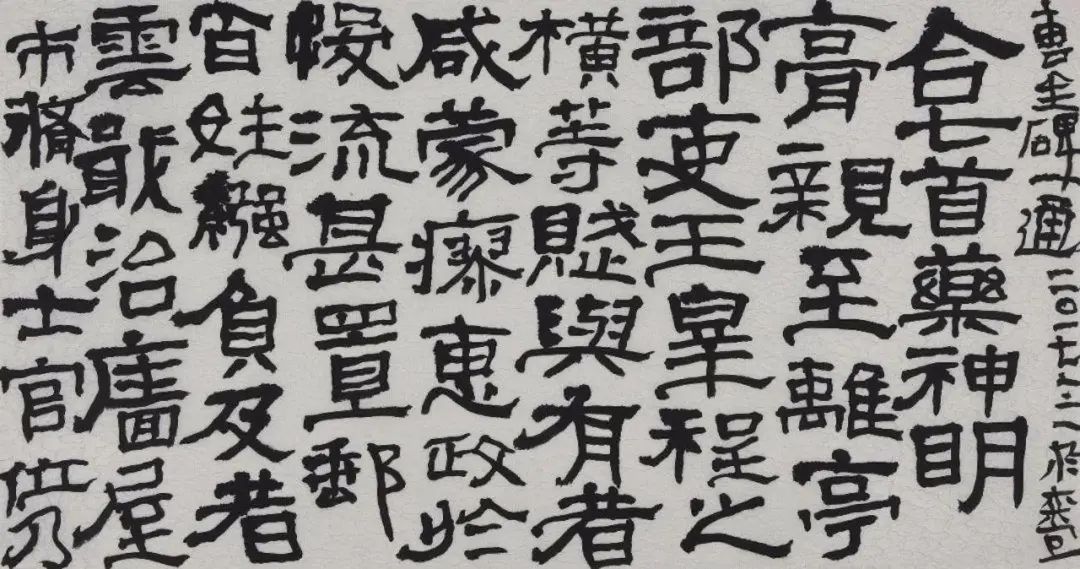 曹全碑一通二〇一七
合七首藥神明
膏親至離亭
部吏王皋程之
橫等賦與有者
咸蒙瘳惠政於
悛流甚置郵
百姓繦負反者
雲戢治廧屋
市身士官